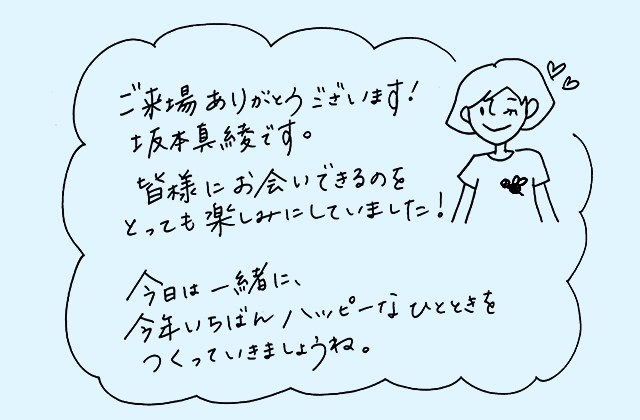 ご来場ありがとうございます!
坂本真綾です。
皆様にお会いできるのを
とっても楽しみにしていました!
今日は一緒に、
今年いちばんハッピーなひとときを
つくっていきましょうね。